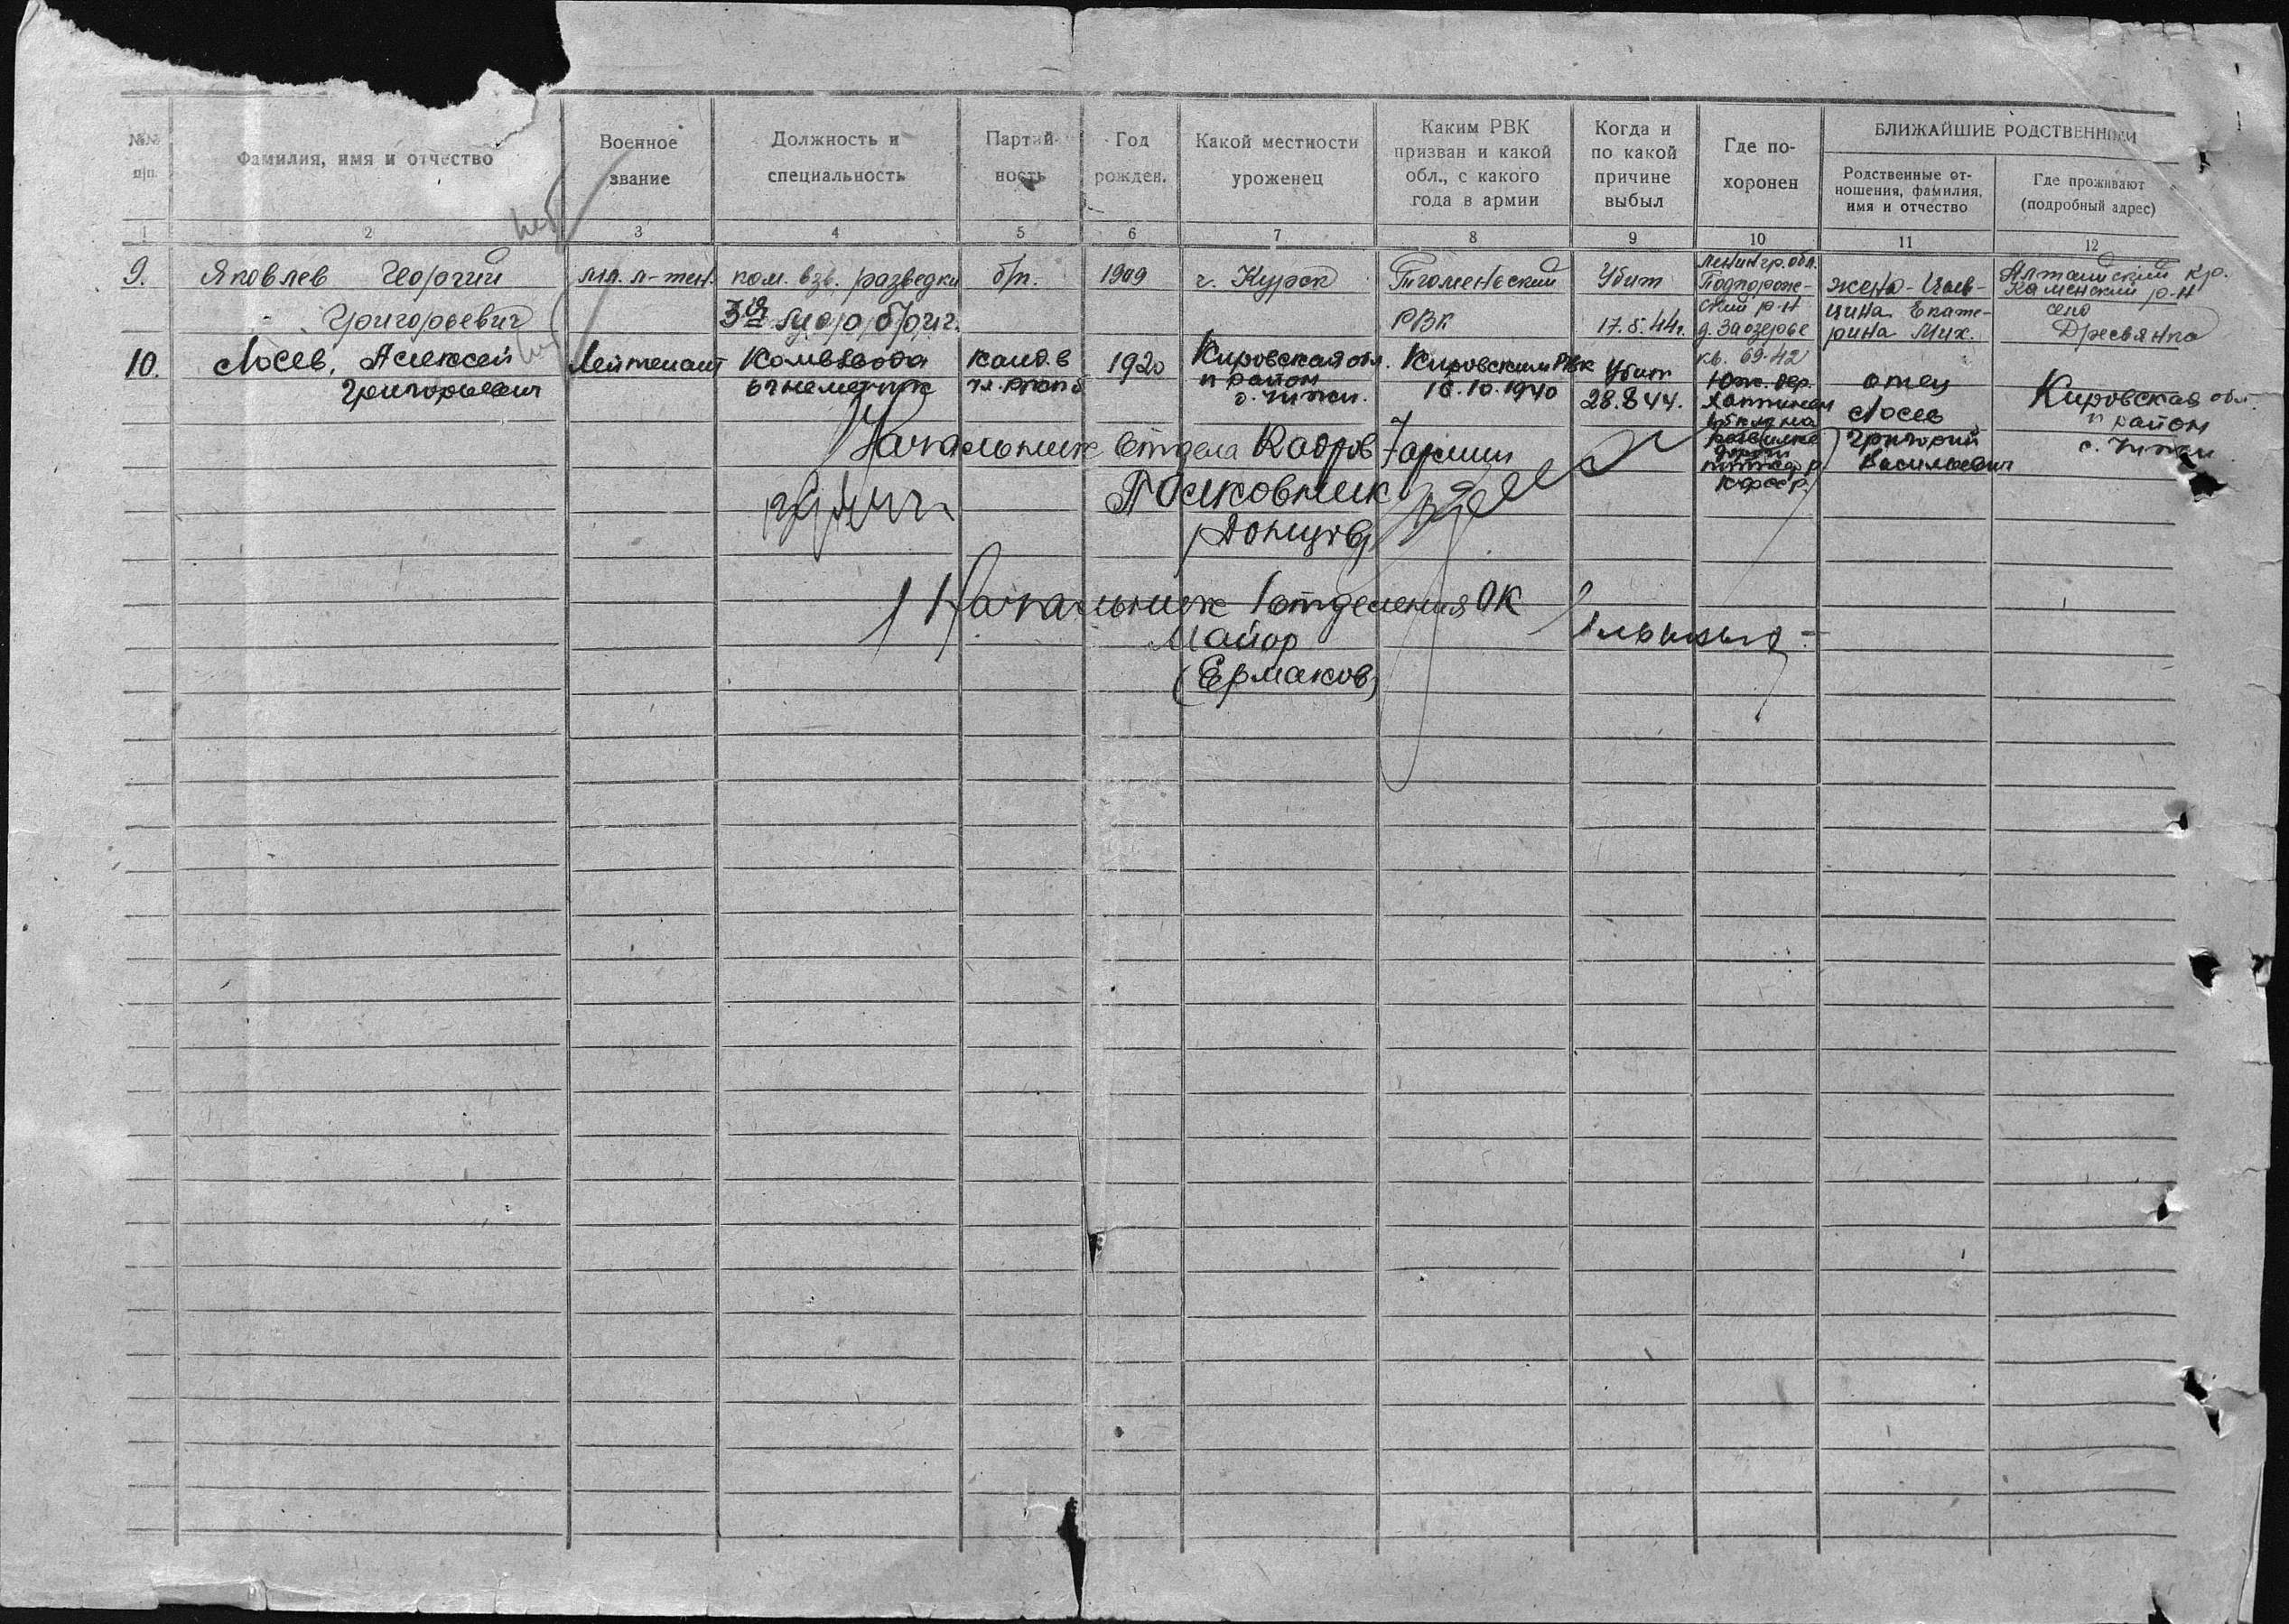 №№ п/п.
Фамилия, имя и отчество
Военное
звание
Должность и
специальность
Партий-
ность
Год
рожден.
Какой местности
уроженец
Каким РВК
призван и какой
обл., с какого
года в армии
Когда и
по какой
причине
выбыл
Где по-
хоронен
БЛИЖАЙШИЕ РОДСТВЕННИКИ
Родственные от-
ношения, фамилия,
имя и отчество
Где проживают
(подробный адрес)
1 2 3 4 5 6 7 8 9 10 11 12
9.
Яковлев Георгий
Григорьевич
мл. л-тен.
ком. взв. разведки
б/п.
1909
г. Курск
РВК
Убит
17.8.44г.
Ленингр. обл.
Подпороже-
ский р-н
д. Заозерье
жена
цина Екате-
рина Мих.
Алтайский кр.
Каменский р-н
село
Дресвянка
10.
Лосев, Алексей
Григорьевич
Лейтенант
Ком.взвода
огнеметчик
канд. в
1920
Кировская обл.
п район
Кировским РВК
16.10.1940
Убит
28.8.44.
кв. 69-42
Юж. дер.
развилка
дорог
отец
Лосев
Григорий
Васильевич
Кировская обл.
п район
Начальник Отдела Кадров 7 армии
Полковник
(Донцов)
Начальник 1 отделения ОК
Майор
(Ермаков)